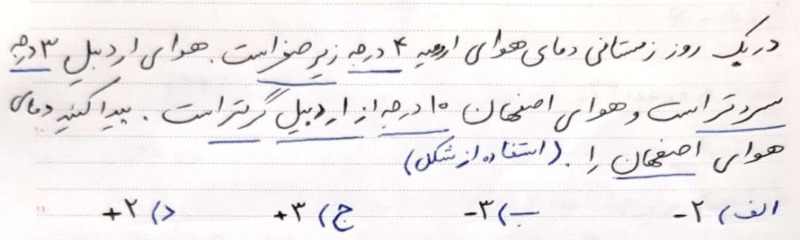 دریک روز زمستانی دمای هوای ارومیه ۴ درجه زیر صفر است. هوای اردبیل ۳ درجه
سردتر است و هوای اصفهان ۱۰ درجه از اردبیل گرمتر است. پیدا کنید دمای
هوای اصفهان را. (استفاده از شکل)
الف) ۲- ب) ۳- ج) ۳+ د) ۲+